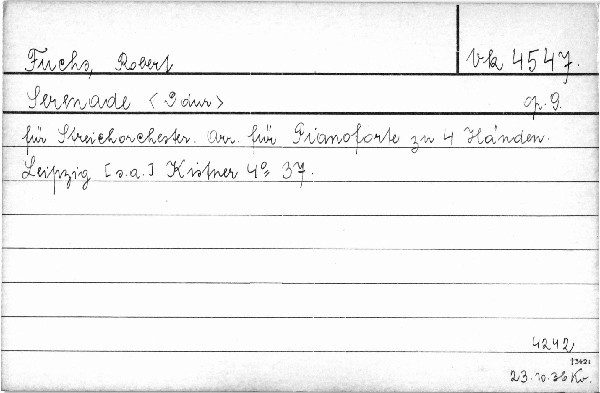 Fuchs, Robert
vk 4547.
Serenade <D dur> op. 9.
für Streichorchester. Arr. für Pianoforte zu 4 Händen.
Leipzig [s.a.] Kistner 4° 37.
4242
13421
23.10.36 Kv.